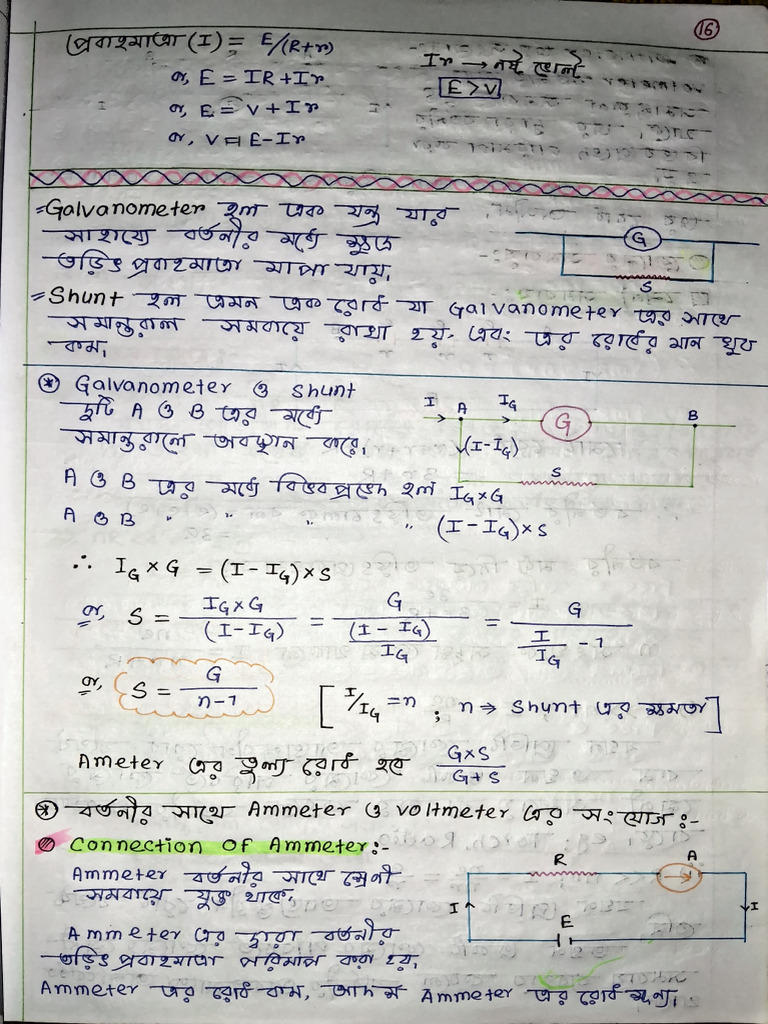 16
প্রবাহমাত্রা (I) = E/(R+r)
Ir → নষ্ট ভোল্ট
বা, E = IR + Ir
E > V
বা, E = V + Ir
বা, V = E - Ir
⇒ Galvanometer হল এক যন্ত্র যার
সাহায্যে বর্তনীর মধ্যে ক্ষুদ্র
তড়িৎ প্রবাহমাত্রা মাপা যায়।
G
S
⇒ Shunt হল এমন এক রোধ যা Galvanometer এর সাথে
সমান্তরাল সমবায়ে রাখা হয়. এবং এর রোধের মান খুব
কম।
* Galvanometer ও Shunt
দুটি A ও B এর মধ্যে
সমান্তরালে অবস্থান করে।
I A I_G G B
(I-I_G)
S
A ও B এর মধ্যে বিভবপ্রভেদ হল I_G×G
A ও B " " " " (I - I_G)×S
∴ I_G × G = (I - I_G)×S
বা, S = I_G×G/(I-I_G) = G/((I - I_G)/I_G) = G/(I/I_G - 1)
বা, S = G/(n-1) [I/I_G = n ; n ⇒ Shunt এর ক্ষমতা]
Ameter এর তুল্য রোধ হবে G×S/G+S
* বর্তনীর সাথে Ammeter ও voltmeter এর সংযোগ:-
Connection of Ammeter:-
Ammeter বর্তনীর সাথে শ্রেনী
সমবায়ে যুক্ত থাকে.
R A
I E I
Ammeter এর দ্বারা বর্তনীর
তড়িৎ প্রবাহমাত্রা পরিমাপ করা হয়.
Ammeter এর রোধ কম, আদর্শ Ammeter এর রোধ শূন্য।